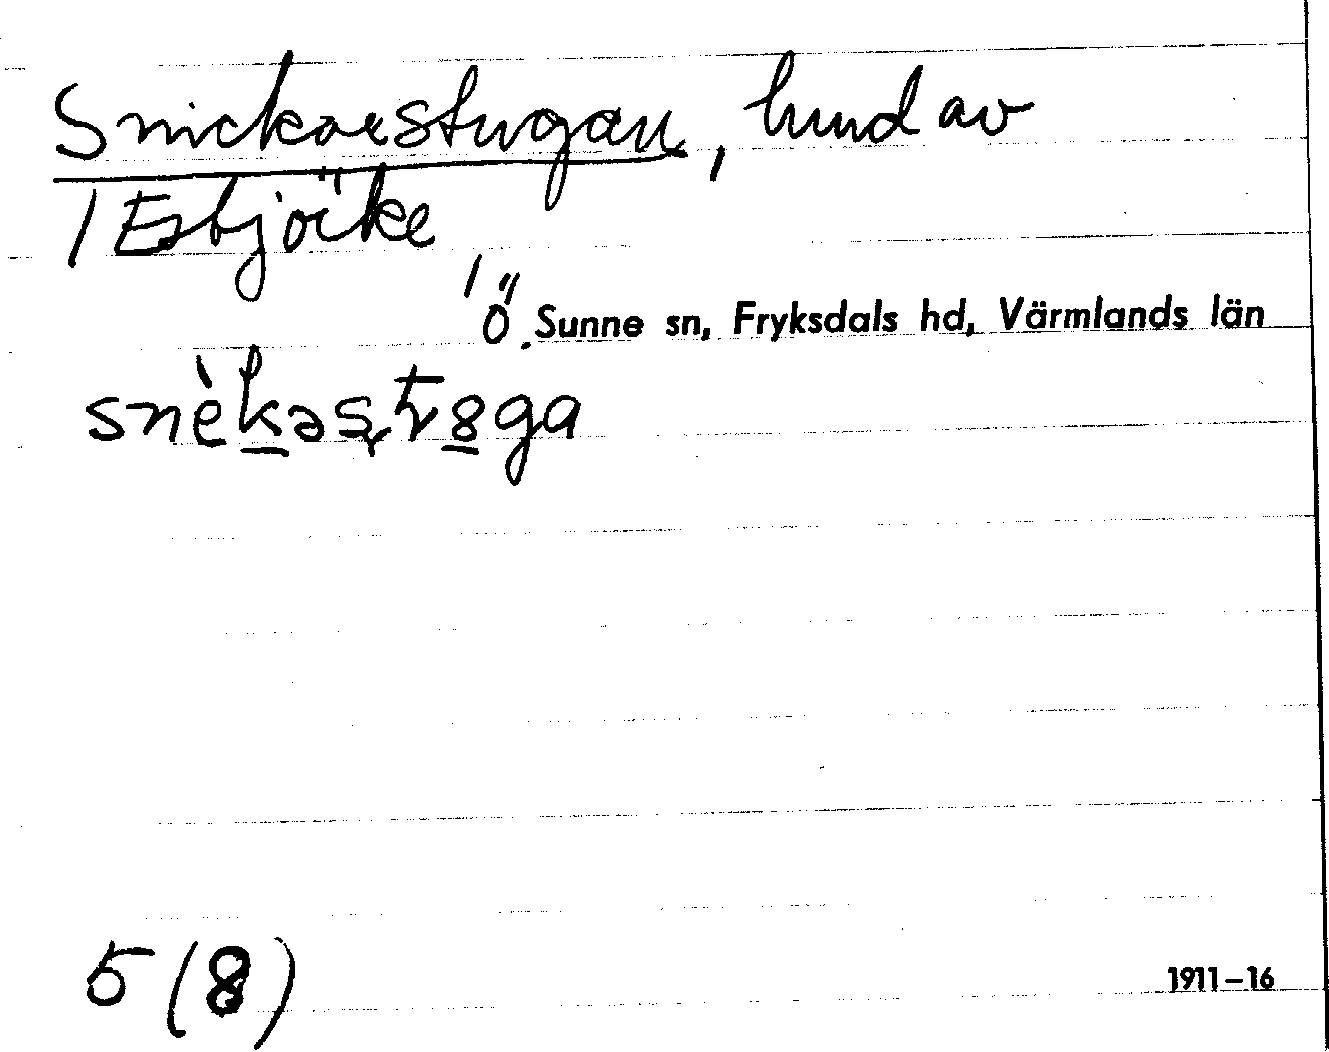 Snickarstugan, lund av
/ Esbjörke
/ Ö. Sunne sn, Fryksdals hd, Värmlands län
5 (8)
1911–16